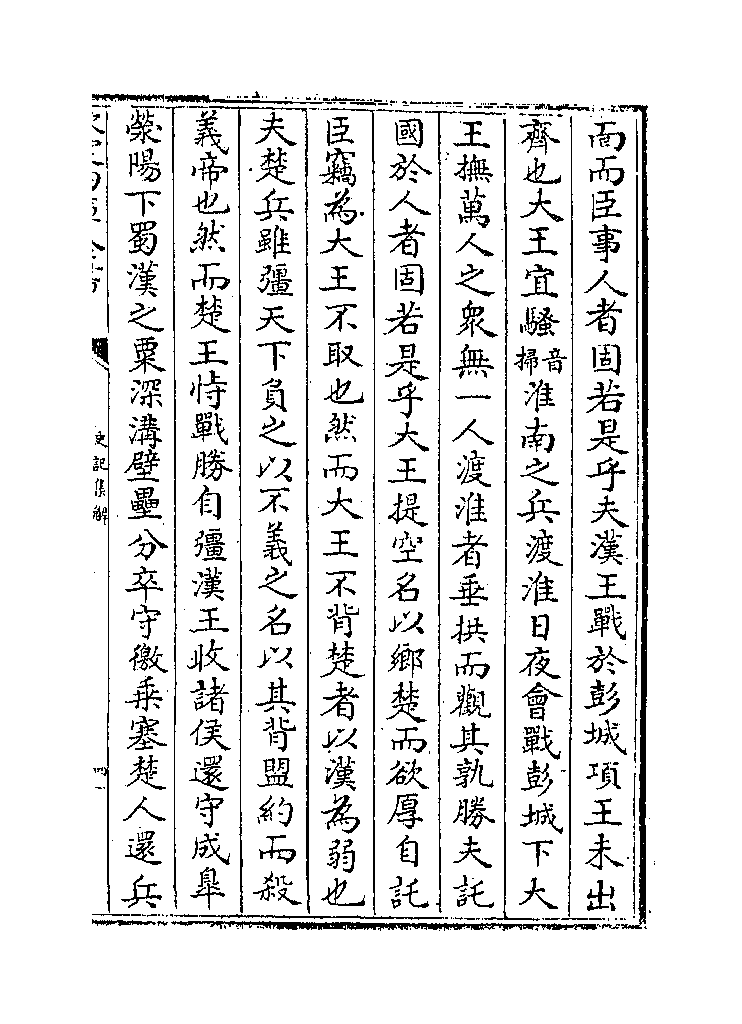 面而臣事人者固若是乎夫漢王戰於彭城項王未出
齊也大王宜騷音掃淮南之兵渡淮日夜會戰彭城下大
王撫萬人之衆無一人渡淮者垂拱而觀其孰勝夫託
國於人者固若是乎大王提空名以鄉楚而欲厚自託
臣竊為大王不取也然而大王不背楚者以漢為弱也
夫楚兵雖彊天下負之以不義之名以其背盟約而殺
義帝也然而楚王恃戰勝自彊漢王收諸侯還守成臯
滎陽下蜀漢之粟深溝壁壘分卒守徼乗塞楚人還兵
史記集解